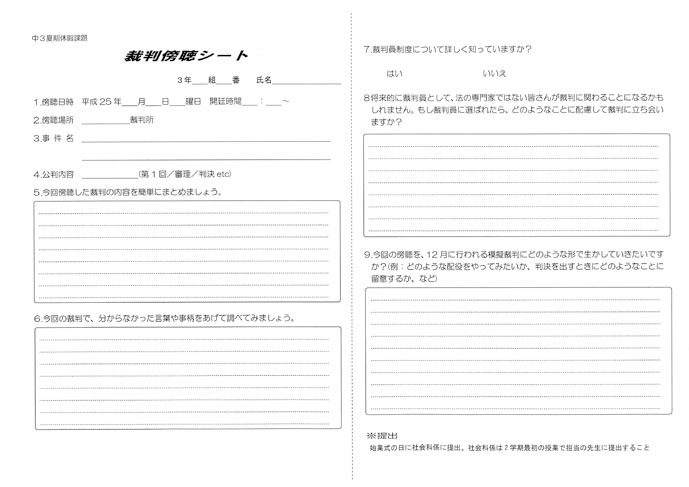 中３夏期休暇課題
裁判傍聴シート
３年＿＿組＿＿番　氏名＿＿＿＿＿＿＿＿
１.傍聴日時　平成25年＿＿月＿＿日＿＿曜日　開廷時間＿＿：＿＿～
２.傍聴場所　＿＿＿＿＿＿裁判所
３.事 件 名
４.公判内容　＿＿＿＿＿＿＿(第１回／審理／判決 etc)
５.今回傍聴した裁判の内容を簡単にまとめましょう。
６.今回の裁判で、分からなかった言葉や事柄をあげて調べてみましょう。
７.裁判員制度について詳しく知っていますか？
はい　　いいえ
８将来的に裁判員として、法の専門家ではない皆さんが裁判に関わることになるかも
しれません。もし裁判員に選ばれたら、どのようなことに配慮して裁判に立ち会い
ますか？
９.今回の傍聴を、12月に行われる模擬裁判にどのような形で生かしていきたいです
か？(例：どのような配役をやってみたいか、判決を出すときにどのようなことに
留意するか、など)
※提出
始業式の日に社会科係に提出。社会科係は２学期最初の授業で担当の先生に提出すること